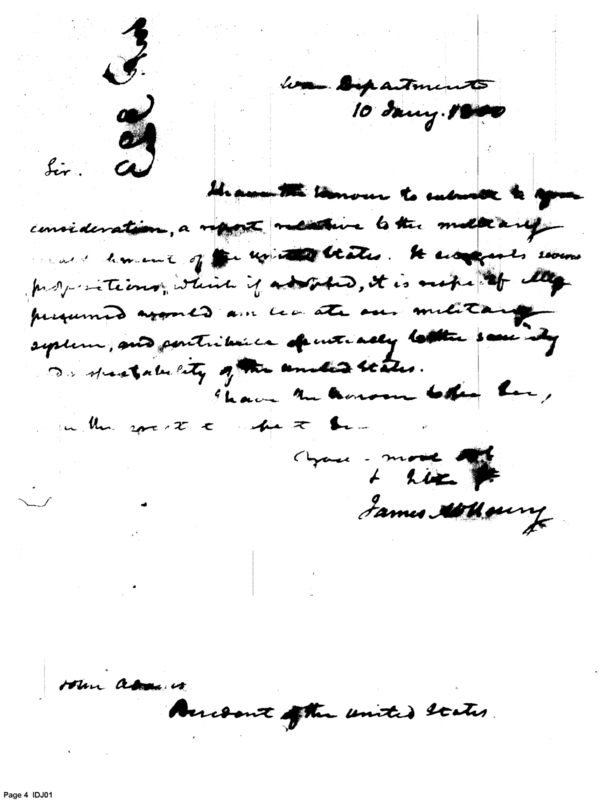 War Department
10 Jany. 1800
Sir.
I have the honour to submit to your
consideration, a report relative to the military
of the United States. It suggests several
propositions, which if adopted, it is respectfully
presumed would our military
system, and contribute essentially to the security
of the United States.
I have the honour to be Sir,
with the
most obt
James McHenry
John Adams
President of the United States.
Page 4 IDJ01